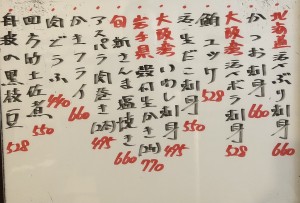 北海道 活〆ぶり刺身 660
かつお刺身 660
大阪産 活〆ボラ刺身 528
鯛ユッケ 528
活生だこ刺身 550
大阪産 いわし刺身 495
岩手県 殻付生かき(2ヶ) 770
旬 新さんま塩焼き 660
アスパラ肉巻き(2本) 495
かきフライ 660
肉どうふ 440
四方竹土佐煮 550
自装の黒枝豆 528